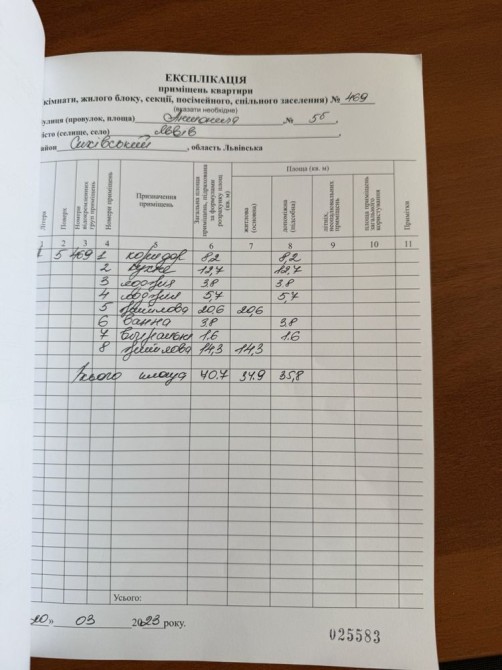 ЕКСПЛІКАЦІЯ
приміщень квартири
кімнати, жилого блоку, секції, посімейного, спільного заселення) № 469
(вказати необхідне)
улиця (провулок, площа) № 5б,
істо (селище, село) Львів,
айон Сихівський, область Львівська
Літера
Поверх
Номери відокремлених груп приміщень
Номери приміщень
Призначення приміщень
Загальна площа приміщень, підрахована за формулами розрахунку площ (кв. м)
Площа (кв. м)
житлова (основна)
допоміжна (підсобна)
літніх, неопалювальних приміщень
площа приміщень загального користування
Примітки
1 2 3 4 5 6 7 8 9 10 11
5 469 1 коридор 8,2 8,2
2 кухня 12,7 12,7
3 лоджия 3.8 3.8
4 лоджия 5,7 5,7
5 житлова 20,6 20,6
6 ванна 3.8 3.8
7 1.6 1.6
8 житлова 14,3 14,3
Усього площа 70.7 34.9 35,8
Усього:
20» 03 2023 року.
025583